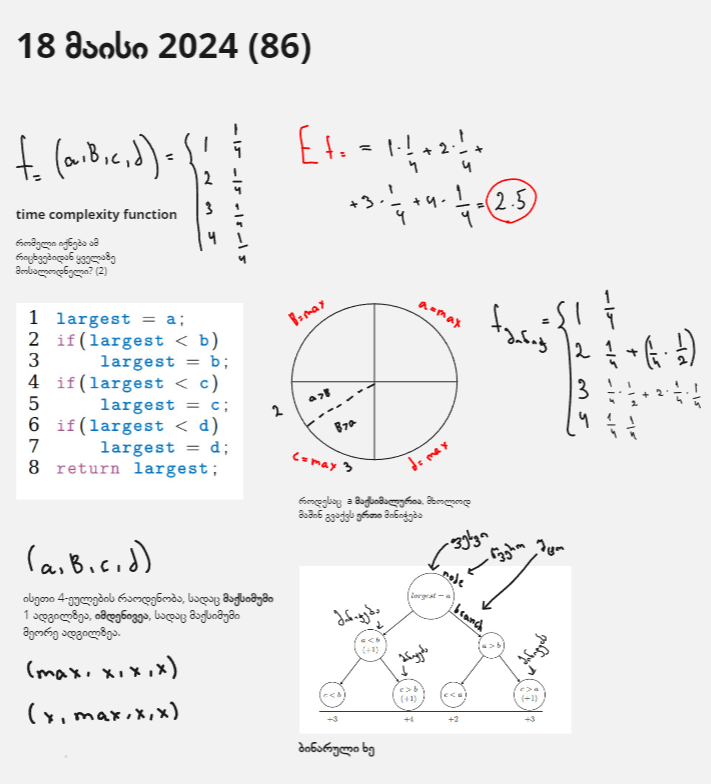 18 მაისი 2024 (86)
f= (a,B,c,d) = { 1 1/4
2 1/4
3 1/4
4 1/4
time complexity function
რომელი იქნება ამ
რიცხვებიდან ყველაზე
მოსალოდნელი? (2)
E f= = 1·1/4 + 2·1/4 +
+3·1/4 + 4·1/4 = 2.5
1 largest = a;
2 if(largest < b)
3 largest = b;
4 if(largest < c)
5 largest = c;
6 if(largest < d)
7 largest = d;
8 return largest;
B=max
a=max
a>B
B>a
2
c=max 3
d=max
როდესაც a მაქსიმალურია, მხოლოდ
მაშინ გვაქვს ერთი მინიჭება
f მინიჭ = { 1 1/4
2 1/4 + (1/4 · 1/2)
3 1/4 · 1/2 + 2 · 1/4 · 1/4
4 1/4 1/4
(a,B,c,d)
ისეთი 4-ეულების რაოდენობა, სადაც მაქსიმუმი
1 ადგილზეა, იმდენივეა, სადაც მაქსიმუმი
მეორე ადგილზეა.
(max, x,x,x)
(x,max,x,x)
ფესვი
წვერო
node
largest = a
branch
მინიჭება
a < b
(+1)
a > b
მინიჭებ
მინიჭებ
c < b
c > b
(+1)
c < a
c > a
(+1)
+3 +4 +2 +3
ბინარული ხე